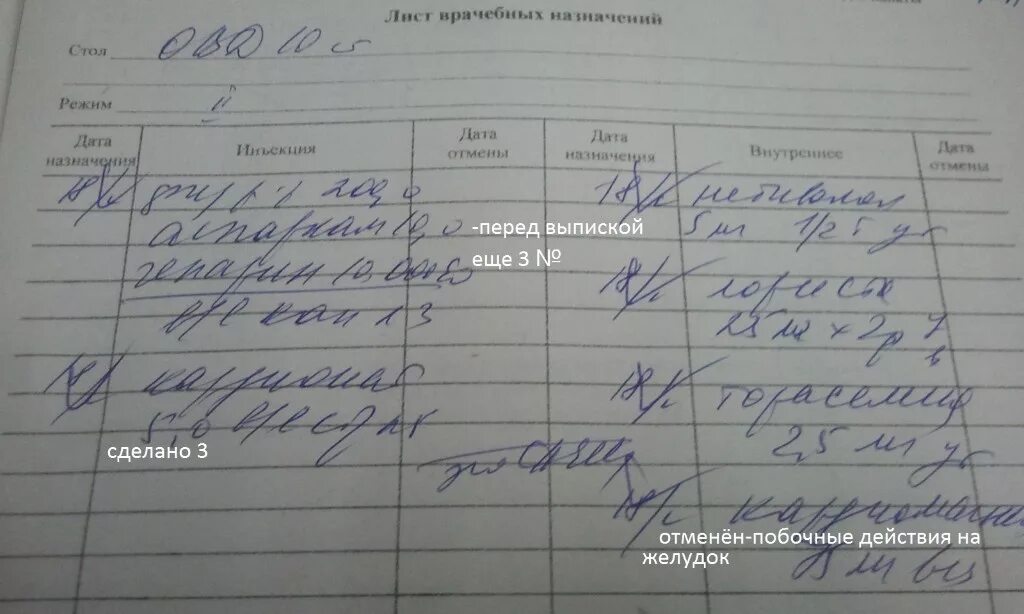 Лист врачебных назначений
Стол ОВД 10 б
Режим II
Дата назначения
Инъекция
Дата отмены
Дата назначения
Внутреннее
Дата отмены
физ р-р 200,0
аспаркам 10,0
-перед выпиской
еще 3 №
гепарин 10.000
в/в кап
кардионат
5,0 в/в стр
сделано 3
18/ небиволол
5 мг 1/2 т у
18/ лориста
25 мг х 2р у
в
18/ торасемид
2,5 мг у
18/ кардиомагнил
отменён-побочные действия на
желудок
75 мг веч